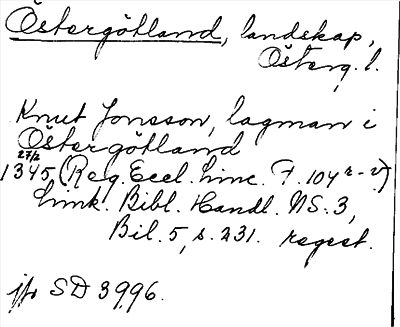 Östergötland, landskap,
Österg. l.
Knut Jonsson, lagman i
Östergötland
27/2
1345 (Reg. Eccl. Linc. F. 104 r-v)
Link. Bibl. Handl. NS. 3,
Bil. 5, s. 231. regest.
jfr SD 3996.